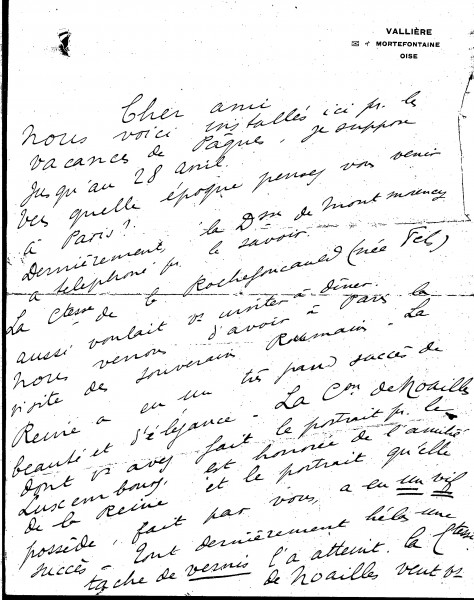 VALLIÈRE
MORTEFONTAINE
OISE
Cher ami
Nous voici installés ici pr. les
vacances de Pâques, je suppose
jusqu'au 28 avril.
Vers quelle époque pensez vous venir
à Paris?
Dernièrement, la Dsse de Montmorency
a telephoné pr. le savoir.
La Ctesse de la Rochefoucauld (née Fels)
aussi voulait vs inviter à dîner.
Nous venons d'avoir à Paris la
visite des souverains Roumains. La
Reine a eu un très grand succès de
beauté et d'élégance. La Csse de Noailles
dont vs avez fait le portrait pr. le
Luxembourg, est honorée de l'amitié
de la Reine et le portrait qu'elle
possède, fait par vous, a eu un vif
succès. Tout dernièrement hélas une
tache de vernis l'a atteint. La Ctesse
de Noailles veut vs